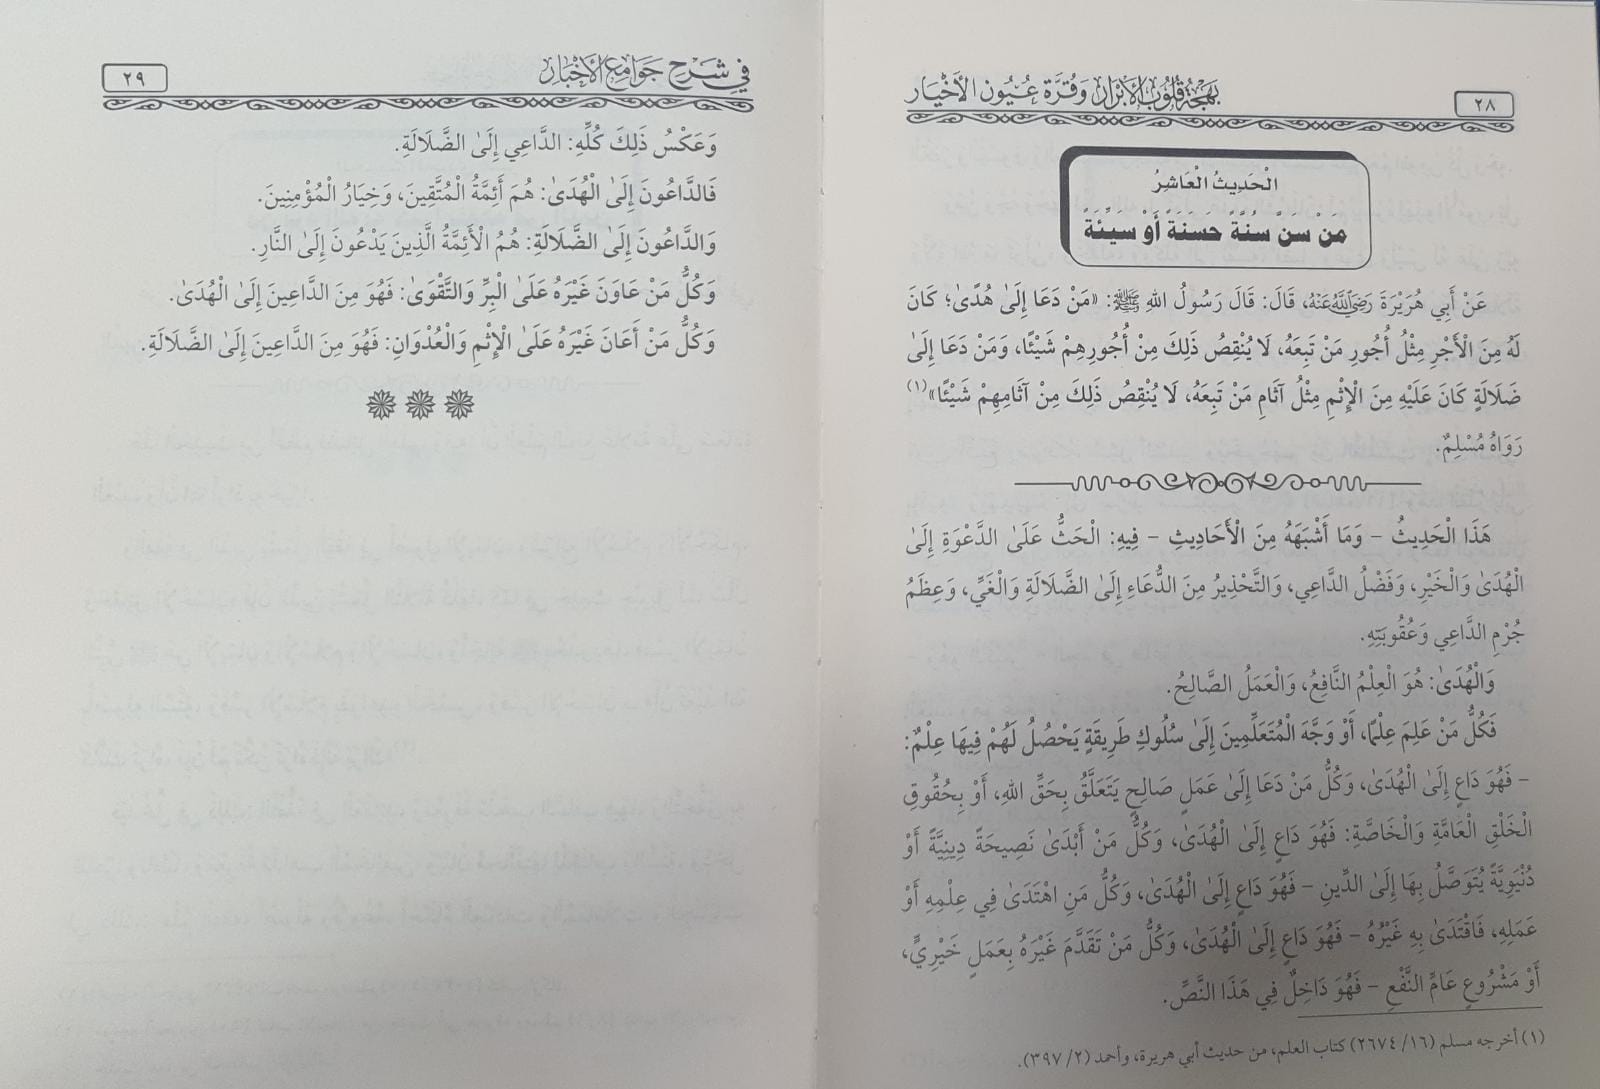 ٢٨
بَهْجَةُ قُلُوبِ الأَبْرَارِ وَقُرَّةُ عُيُونِ الأَخْيَارِ
الْحَدِيثُ الْعَاشِرُ
مَنْ سَنَّ سُنَّةً حَسَنَةً أَوْ سَيِّئَةً
عَنْ أَبِي هُرَيْرَةَ رَضِيَ اللَّهُ عَنْهُ، قَالَ: قَالَ رَسُولُ اللهِ ﷺ: «مَنْ دَعَا إِلَىٰ هُدًى؛ كَانَ
لَهُ مِنَ الْأَجْرِ مِثْلُ أُجُورِ مَنْ تَبِعَهُ، لَا يُنْقِصُ ذَلِكَ مِنْ أُجُورِهِمْ شَيْئًا، وَمَنْ دَعَا إِلَىٰ
ضَلَالَةٍ كَانَ عَلَيْهِ مِنَ الْإِثْمِ مِثْلُ آثَامِ مَنْ تَبِعَهُ، لَا يُنْقِصُ ذَلِكَ مِنْ آثَامِهِمْ شَيْئًا»(١)
رَوَاهُ مُسْلِمٌ.
هَذَا الْحَدِيثُ – وَمَا أَشْبَهَهُ مِنَ الْأَحَادِيثِ – فِيهِ: الْحَثُّ عَلَىٰ الدَّعْوَةِ إِلَىٰ
الْهُدَىٰ وَالْخَيْرِ، وَفَضْلُ الدَّاعِي، وَالتَّحْذِيرُ مِنَ الدُّعَاءِ إِلَىٰ الضَّلَالَةِ وَالْغَيِّ، وَعِظَمُ
جُرْمِ الدَّاعِي وَعُقُوبَتِهِ.
وَالْهُدَىٰ: هُوَ الْعِلْمُ النَّافِعُ، وَالْعَمَلُ الصَّالِحُ.
فَكُلُّ مَنْ عَلِمَ عِلْمًا، أَوْ وَجَّهَ الْمُتَعَلِّمِينَ إِلَىٰ سُلُوكِ طَرِيقَةٍ يَحْصُلُ لَهُمْ فِيهَا عِلْمٌ:
– فَهُوَ دَاعٍ إِلَىٰ الْهُدَىٰ، وَكُلُّ مَنْ دَعَا إِلَىٰ عَمَلٍ صَالِحٍ يَتَعَلَّقُ بِحَقِّ اللهِ، أَوْ بِحُقُوقِ
الْخَلْقِ الْعَامَّةِ وَالْخَاصَّةِ: فَهُوَ دَاعٍ إِلَىٰ الْهُدَىٰ، وَكُلُّ مَنْ أَبْدَىٰ نَصِيحَةً دِينِيَّةً أَوْ
دُنْيَوِيَّةً يُتَوَصَّلُ بِهَا إِلَىٰ الدِّينِ – فَهُوَ دَاعٍ إِلَىٰ الْهُدَىٰ، وَكُلُّ مَنِ اهْتَدَىٰ فِي عِلْمِهِ أَوْ
عَمَلِهِ، فَاقْتَدَىٰ بِهِ غَيْرُهُ – فَهُوَ دَاعٍ إِلَىٰ الْهُدَىٰ، وَكُلُّ مَنْ تَقَدَّمَ غَيْرَهُ بِعَمَلٍ خَيْرِيٍّ،
أَوْ مَشْرُوعٍ عَامِّ النَّفْعِ – فَهُوَ دَاخِلٌ فِي هَذَا النَّصِّ.
(١) أخرجه مسلم (١٦/ ٢٦٧٤) كتاب العلم، من حديث أبي هريرة، وأحمد (٢/ ٣٩٧).
فِي شَرْحِ جَوَامِعِ الأَخْبَارِ
٢٩
وَعَكْسُ ذَلِكَ كُلِّهِ: الدَّاعِي إِلَىٰ الضَّلَالَةِ.
فَالدَّاعُونَ إِلَىٰ الْهُدَىٰ: هُمَ أَئِمَّةُ الْمُتَّقِينَ، وَخِيَارُ الْمُؤْمِنِينَ.
وَالدَّاعُونَ إِلَىٰ الضَّلَالَةِ: هُمُ الْأَئِمَّةُ الَّذِينَ يَدْعُونَ إِلَىٰ النَّارِ.
وَكُلُّ مَنْ عَاوَنَ غَيْرَهُ عَلَىٰ الْبِرِّ وَالتَّقْوَىٰ: فَهُوَ مِنَ الدَّاعِينَ إِلَىٰ الْهُدَىٰ.
وَكُلُّ مَنْ أَعَانَ غَيْرَهُ عَلَىٰ الْإِثْمِ وَالْعُدْوَانِ: فَهُوَ مِنَ الدَّاعِينَ إِلَىٰ الضَّلَالَةِ.